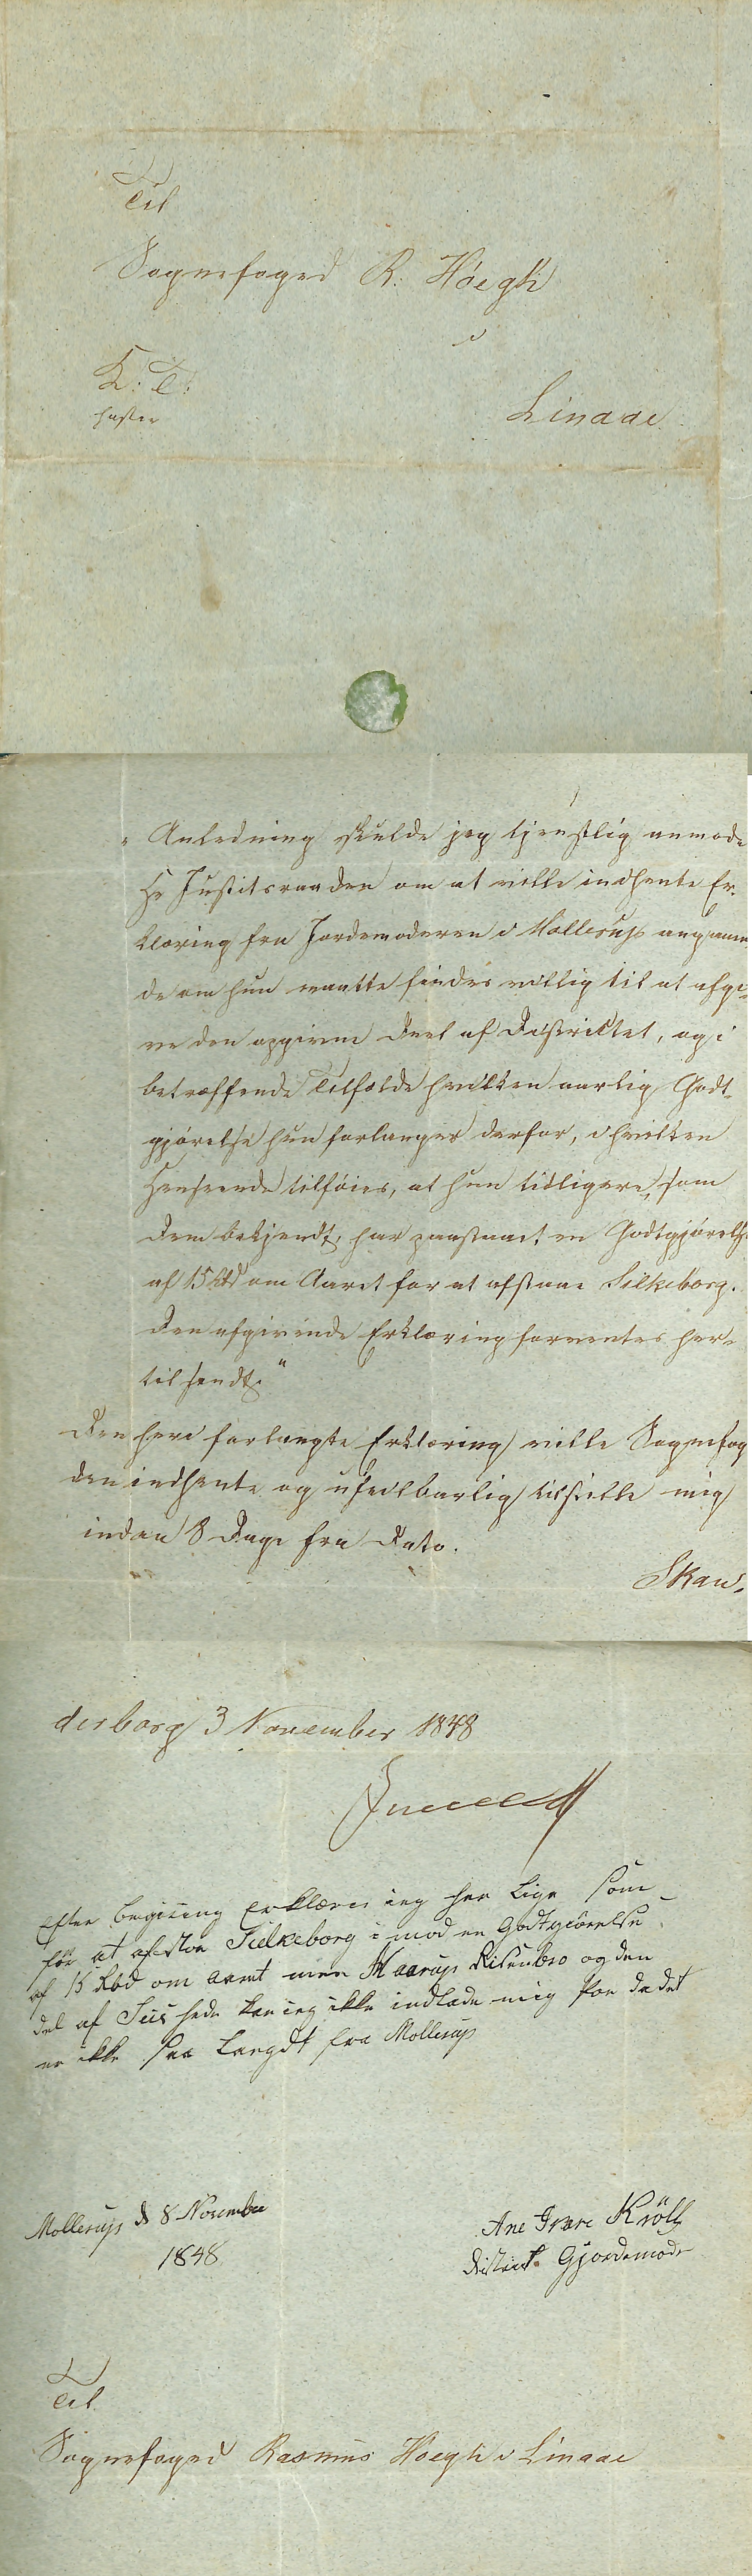 Til
Sognefoged R: Höegh
i
K: T:
haster
Linaae
" Anledning skulde jeg tjenstlig anmode
Hr Justitsraaden om at ville indhente Er-
klæring fra Jordemoderen i Mollerup angaaen-
de om hun maatte findes villig til at afgi-
ve den opgivne Deel af Districtet, og i
betræffende Tilfælde hvilken aarlig Godt-
gjörelse hun forlanger derfor, i hvilken
Henseende tilföies, at hun tidligere, som
Dem bekjendt, har paastaaet en Godtgjörelse
af 15 Rbd om Aaret for at afstaae Silkeborg.
Den afgivende Erklæring forventes her-
til sendt."
Den heri forlangte Erklæring ville Sognefog
den indhente og ufeilbarlig tilstille mig
inden 8 Dage fra Dato.
Skan-
derborg 3 November 1848
Efter begiering Erklærer ieg her Lige som
för at afstoe Silkeborg imod en Godtgiörelse
af 15 Rbd om aaret men Maarup Resenbro og den
del af Seis hede kan ieg ikke indlade mig paa da det
er ikke saa Langdt fra Mollerup
Mollerup d 8 November
1848
Ane Kröll
District Gjordemoder
Til
Sognefoged Rasmus Höegh i Linaae